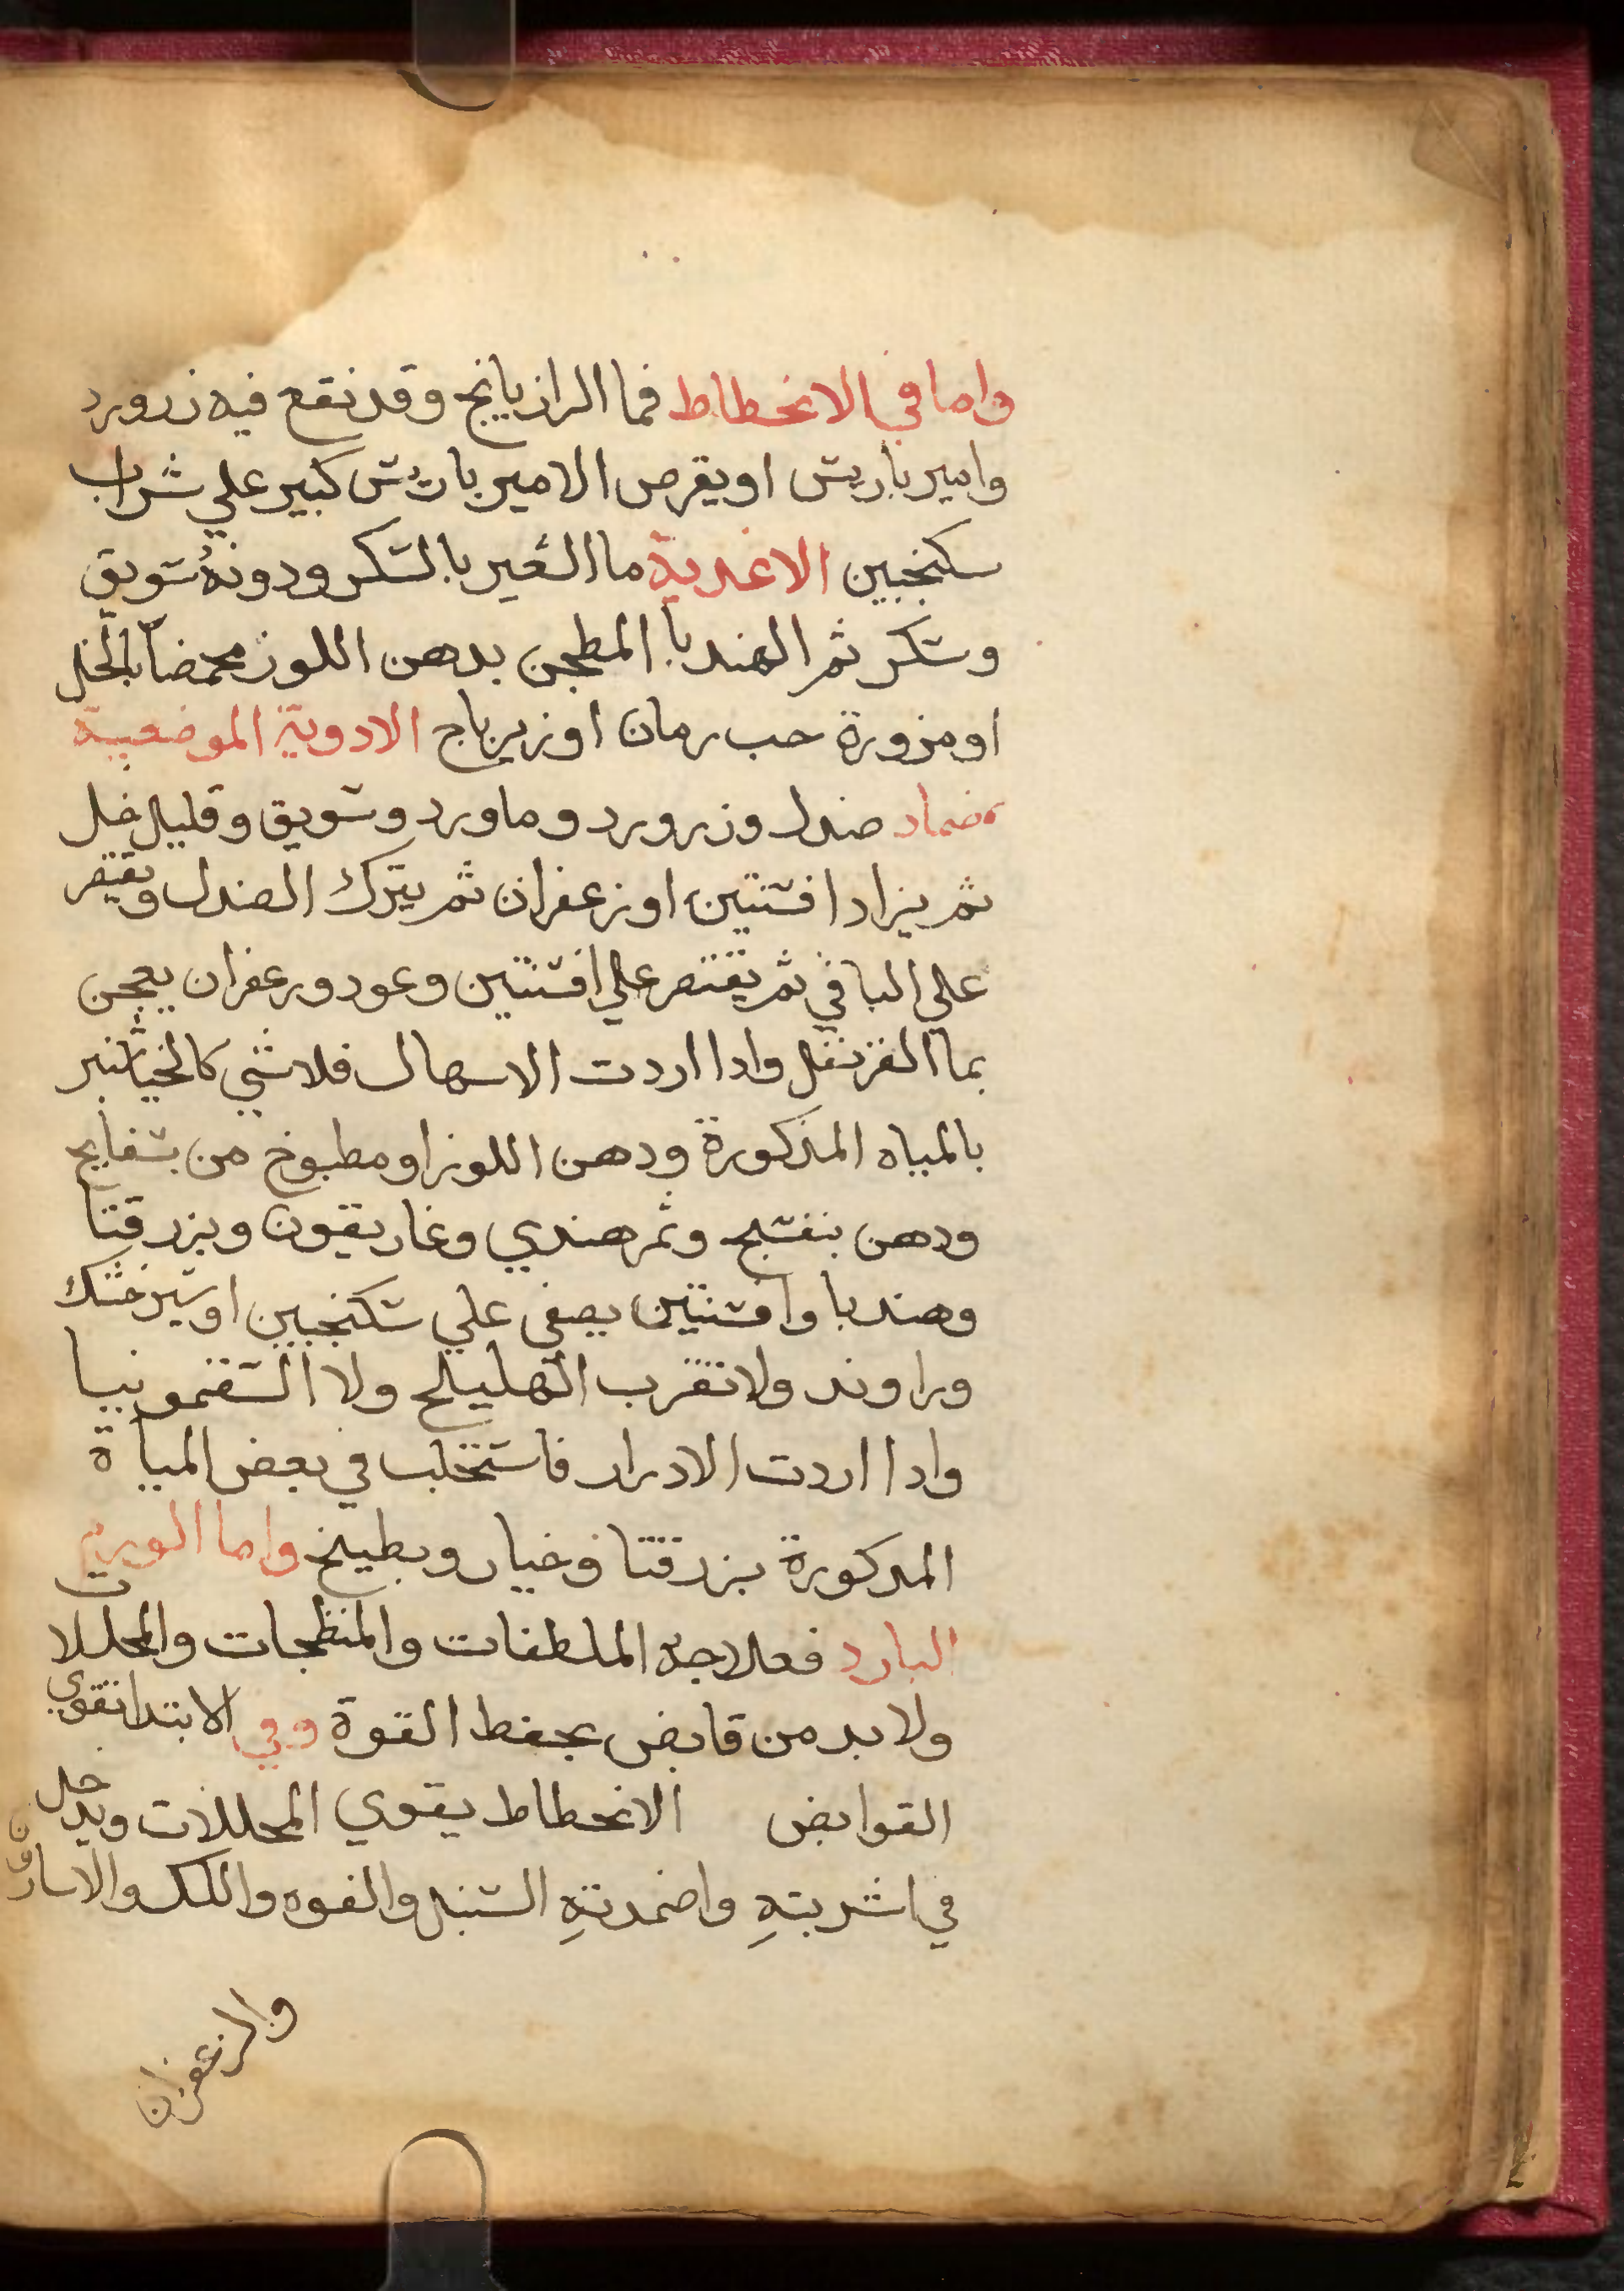 واما في الانحطاط فما الرازيانج وقد نقع فيه زرورد
وامير باريس او بقرص الامير باريس كبير علي شراب
سكنجبين الاغدية ما الشعير بالسكر ودونهُ سويق
وسكر ثم الهندبا المطجن بدهن اللوز محمضاً بالخل
او مزورة حب رمان او زيرباج الادوية الموضعية
ضماد صندل وزرورد وماورد وسويق وقليل خل
ثم يزاد افسنتين او زعفران ثم يترك الصندل ويقتصر
علي الباقي ثم يقتصر علي افسنتين وعود وزعفران يعجن
بما القرنفل وادا اردت الاسهال فلا شي كالخيار شنبر
بالمياه المذكورة ودهن اللوز او مطبوخ من بسفايج
ودهن بنفسج وتمر هندي وغاريقون وبزر قثا
وهندبا وافسنتين يصفى علي سكنجبين او شيرخشك
وراوند ولا تقرب الهليلج ولا السقمونيا
وادا اردت الادرار فاستحلب في بعض المياة
المدكورة بزر قثا وخيار وبطيخ واما الورم
البارد فعلاجه الملطفات والمنظجات والمحللات
ولا بد من قابض يحفط القوة وفي الابتدا تقوي
القوابض الانحطاط يقوي المحللات ويدخل
في اشربتهِ واضمدتهِ السنبل والفوه واللك والاسارون
والزعفران